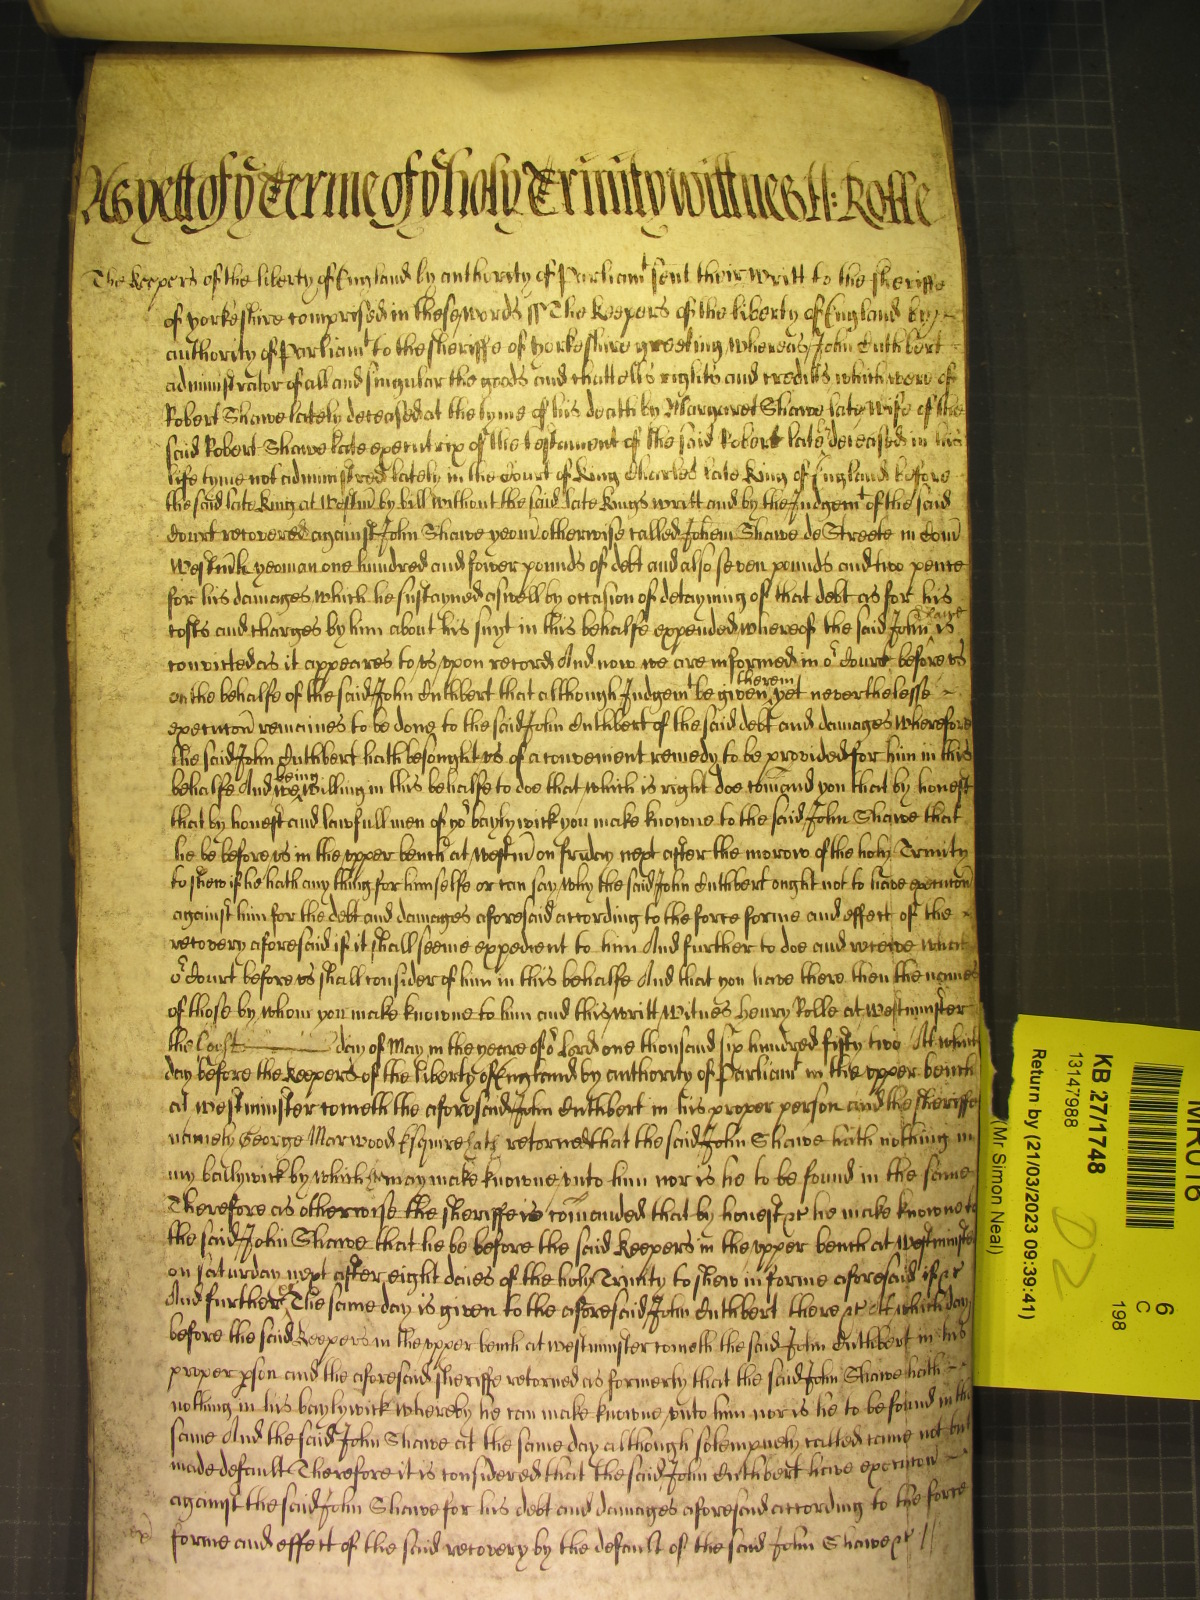 As yett of ye Terme of ye holy Trinity wittnes H: Rolle
The Keepers of the liberty of England by authority of Parliamt sent their writt to the sheriffe
of yorkeshire comprised in these words ss The Keepers of the liberty of England by
authority of Parliamt to the sheriffe of yorkeshire greeting whereas John Cuthbert
administrator of all and singular the goods and chattells rights and credits which were of
Robert Shawe lately deceased at the tyme of his death by Margaret Shawe late wife of the
said Robert Shawe late executrix of the testament of the said Robert late deceased in her
life tyme not administred lately in the Court of King Charles late King of England before
the said late King at Westm̄ by bill without the said late Kings writt and by the Judgemt of the said
Court recovered against John Shawe yeom̄ otherwise called Johem Shawe de Streete in Com̄
Westm̄l yeoman one hundred and fower pounds of debt and also seven pounds and two pence
for his damages which he sustayned aswell by occasion of detayning of that debt as for his
costs and charges by him about his suyt in this behalfe expended whereof the said John Shawe is
convicted as it appeares to us upon record And now we are informed in or Court before us
on the behalfe of the said John Cuthbert that although Judgemt be given therein yet neverthelesse
execucon̄ remaines to be done to the said John Cuthbert of the said debt and damages wherefore
the said John Cuthbert hath besought us of a convenient remedy to be provided for him in this
behalfe And we being willing in this behalfe to doe that which is right doe com̄and you that by honest
that by honest and lawfull men of yor baylywick you make knowne to the said John Shawe that
he be before us in the upper bench at westm̄ on friday next after the morow of the holy Trinity
to shew if he hath any thing for himselfe or can say why the said John Cuthbert ought not to have execucon̄
against him for the debt and damages aforesaid according to the force forme and effect of the
recovery aforesaid if it shall seeme expedient to him And further to doe and receive what
or Court before us shall consider of him in this behalfe And that you have there then the names
of those by whom you make knowne to him and this writt witnes Henry Rolle at Westminster
the day of May in the yeare of or Lord one thousand six hundred fifty two At which
day before the Keepers of the liberty of England by authority of Parliamt in the upper bench
at westminster cometh the aforesaid John Cuthbert in his proper person and the sheriffe
namely George Marwood Esquire hath retorned that the said John Shawe hath nothing in
my baylywick by which may make knowne unto him nor is he to be found in the same
Therefore as otherwise the sheriffe is com̄anded that by honest &c he make knowne to
the said John Shawe that he be before the said Keepers in the upper bench at westminster
on saturday next after eight daies of the holy Trinity to shew in forme aforesaid if &c
And further &c The same day is given to the aforesaid John Cuthbert there &c At which day
before the said Keepers in the upper bench at westminster cometh the said John Cuthbert in his
proper pson and the aforesaid sheriffe retorned as formerly that the said John Shawe hath
nothing in his baylywick whereby he can make knowne unto him nor is he to be found in the
same And the said John Shawe at the same day although solempnely called came not but
made default Therefore it is considered that the said John Cuthbert have execucon
against the said John Shawe for his debt and damages aforesaid according to the force
forme and effect of the said recovery by the default of the said John Shawe &c
MR016
6
C
198
KB 27/1748
13147988
Return by (21/03/2023 09:39:41)
(Mr Simon Neal)
D2